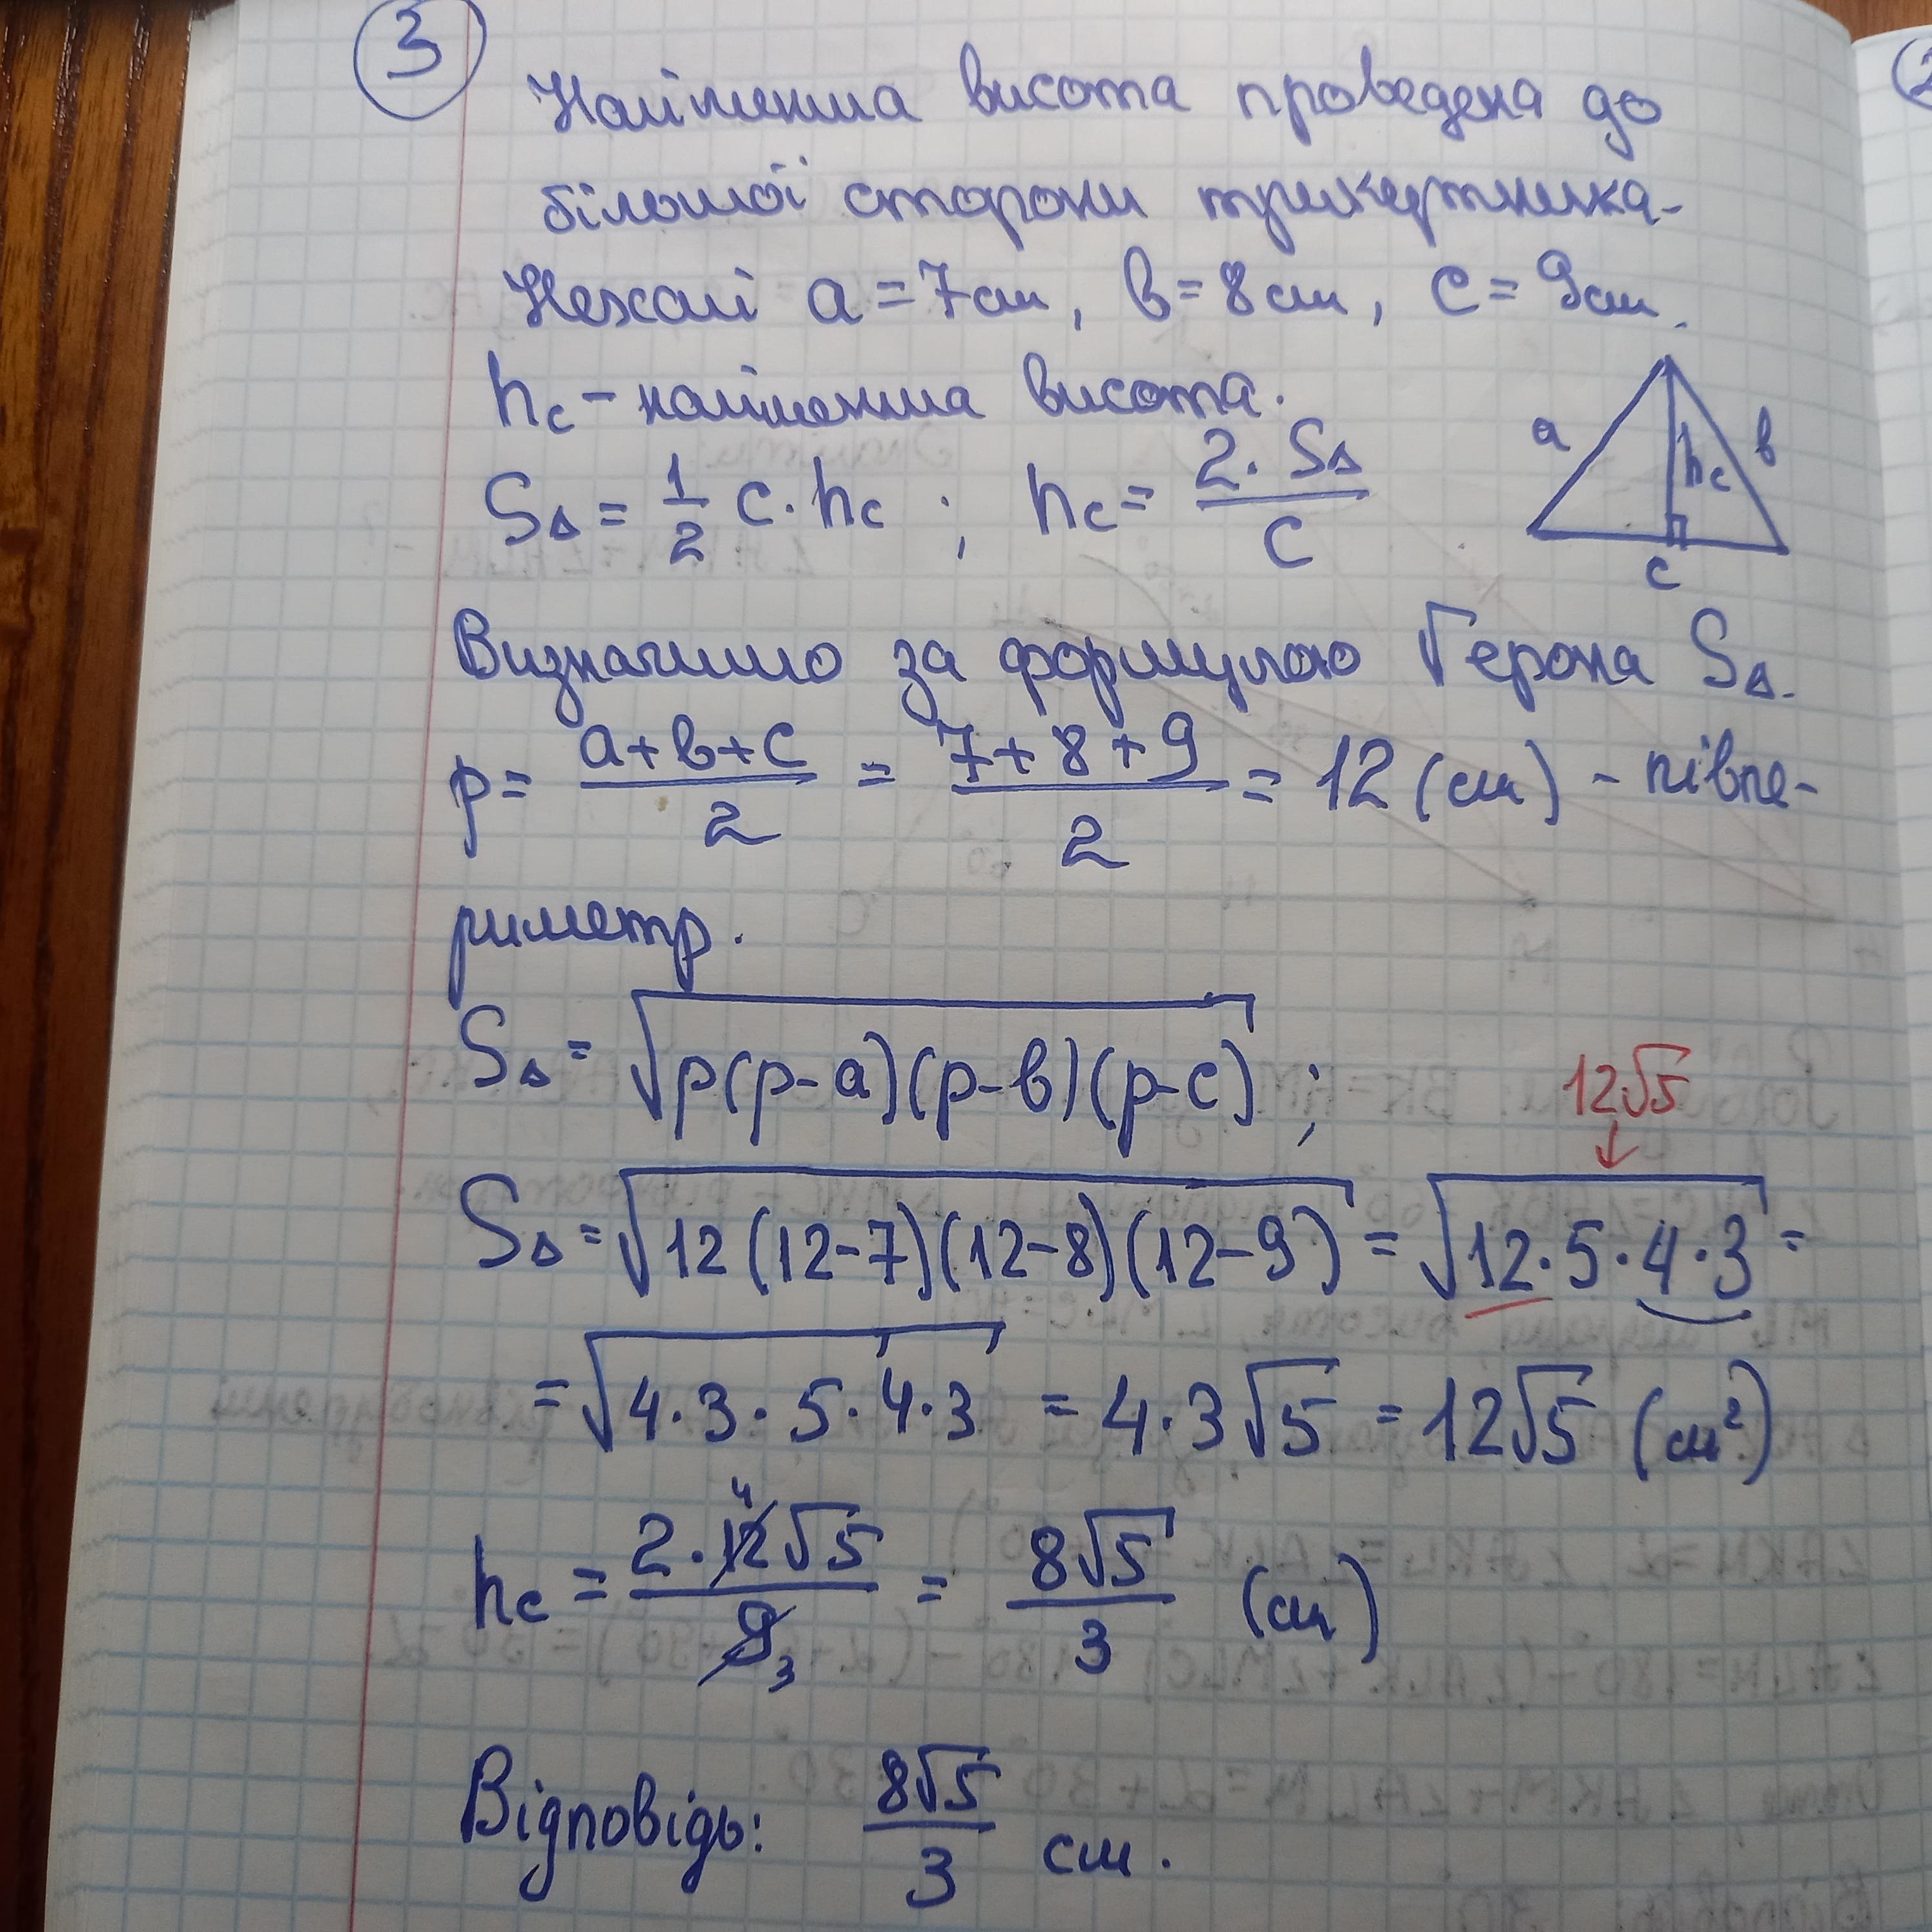 3
Найменша висота проведена до
більшої сторони трикутника.
Нехай a = 7см, в = 8см, c = 9см.
hc – найменша висота.
a
в
hc
c
S∆ = 1/2 c · hc ; hc = 2 · S∆ / c
Визначимо за формулою Герона S∆.
p = a+в+c / 2 = 7+8+9 / 2 = 12 (см) – півпе-
риметр.
S∆ = √p(p-a)(p-в)(p-c) ;
12√5
↓
S∆ = √12(12-7)(12-8)(12-9) = √12·5·4·3 =
= √4·3·5·4·3 = 4·3√5 = 12√5 (см²)
4
hc = 2·12√5 / 9 = 8√5 / 3 (см)
3
Відповідь: 8√5 / 3 см.